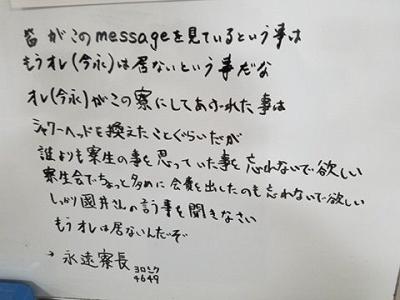 皆がこのmessageを見ているという事は
もうオレ(今永)は居ないという事だな
オレ(今永)がこの寮にしてあげれた事は
シャワーヘッドを換えたことぐらいだが
誰よりも寮生の事を思っていた事を忘れないで欲しい
寮生会でちょっと多めに会費を出したのも忘れないで欲しい
しっかり國井さんの言う事を聞きなさい
もうオレは居ないんだぞ
→ 永遠寮長 ヨロシク
4649